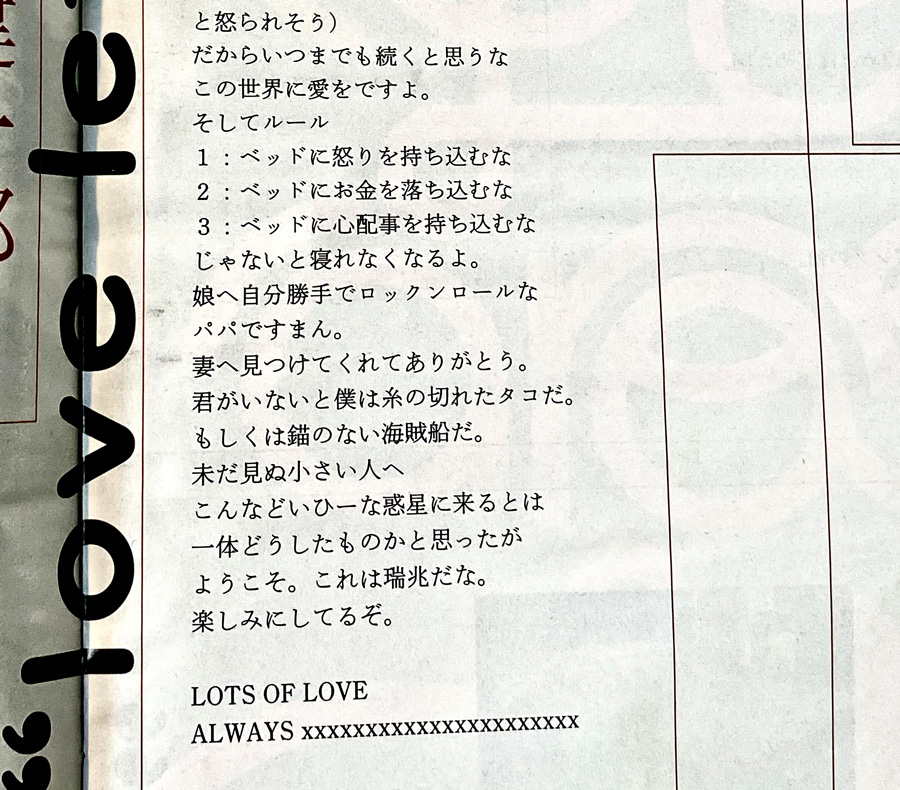 と怒られそう）
だからいつまでも続くと思うな
この世界に愛をですよ。
そしてルール
１：ベッドに怒りを持ち込むな
２：ベッドにお金を落ち込むな
３：ベッドに心配事を持ち込むな
じゃないと寝れなくなるよ。
娘へ自分勝手でロックンロールな
パパですまん。
妻へ見つけてくれてありがとう。
君がいないと僕は糸の切れたタコだ。
もしくは錨のない海賊船だ。
未だ見ぬ小さい人へ
こんなどいひーな惑星に来るとは
一体どうしたものかと思ったが
ようこそ。これは瑞兆だな。
楽しみにしてるぞ。
LOTS OF LOVE
ALWAYS xxxxxxxxxxxxxxxxxxxxxx
love le